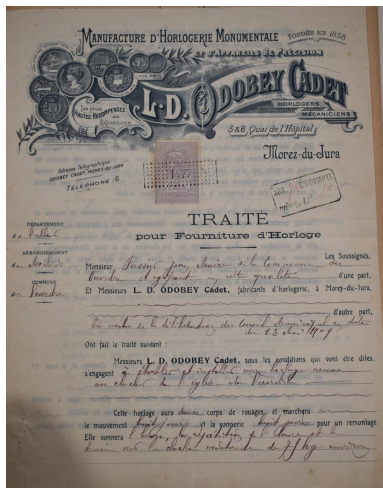 MANUFACTURE D'HORLOGERIE MONUMENTALE
FONDÉE EN 1858
ET D'APPAREILS DE PRÉCISION
L.D. ODOBEY CADET
HORLOGERS
MÉCANICIENS
Les plus
HAUTES RÉCOMPENSES
aux Expositions
5 & 6, Quai de l'Hôpital
Morez-du-Jura
Adresse Télégraphique
ODOBEY CADET, MOREZ-DU-JURA
TÉLÉPHONE 6
TRAITÉ
pour Fourniture d'Horloge
DÉPARTEMENT
ARRONDISSEMENT
COMMUNE
Les Soussignés,
Monsieur Maire de la Commune de
agissant en cette qualité
d'une part,
Et Messieurs L. D. ODOBEY Cadet, fabricants d'horlogerie, à Morez-du-Jura,
d'autre part,
En vertu de la délibération du Conseil Municipal en date
du 23 Mai 1909
Ont fait le traité suivant :
Messieurs L. D. ODOBEY Cadet, sous les conditions qui vont être dites,
s'engagent à et installer une horloge neuve
au clocher de l'église de
Cette horloge aura deux corps de rouages, et marchera
le mouvement huit jours et la sonnerie huit jours pour un remontage.
Elle sonnera l'heure, la répétition de l'heure et la
demie sur la cloche de environ